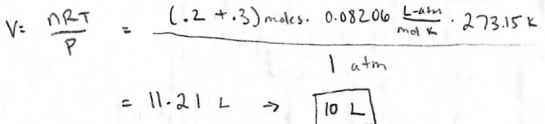 V= nRT/P = (.2 + .3) moles. 0.08206 L-atm/mol K . 273.15 K / 1 atm
= 11.21 L → 10 L